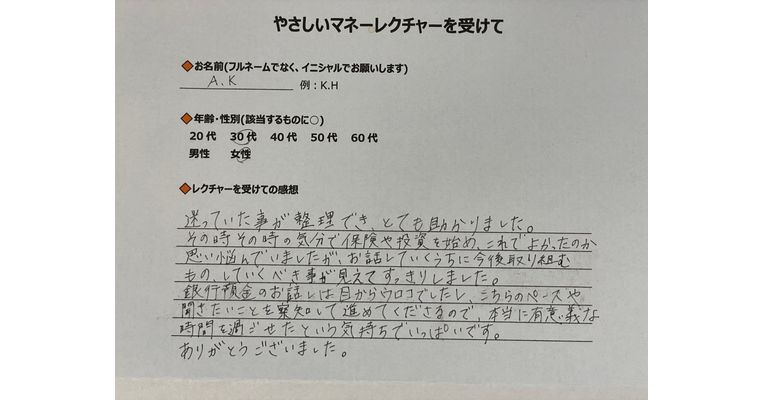 やさしいマネーレクチャーを受けて
◆お名前(フルネームでなく、イニシャルでお願いします)
A.K 例：K.H
◆年齢・性別(該当するものに○)
20代 30代 40代 50代 60代
男性 女性
◆レクチャーを受けての感想
迷っていた事が整理でき とても助かりました。
その時その時の気分で保険や投資を始め、これでよかったのか
思い悩んでいましたが、お話していくうちに今後取り組む
もの、していくべき事が見えてすっきりしました。
銀行預金のお話しは目からウロコでしたし、こちらのペースや
聞きたいことを察知して進めてくださるので、本当に有意義な
時間を過ごせたという気持ちでいっぱいです。
ありがとうございました。